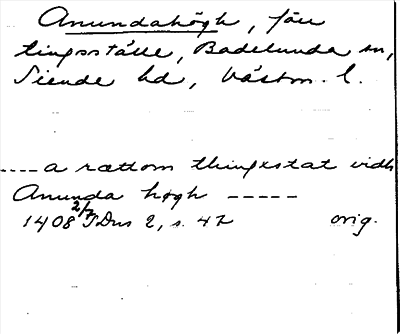 Anundahögh, förr
tingsställe, Badelunda sn,
Siende hd, Västm. l.
---- a rættom thingxstat vidh
Anunda høgh -----
1408 2/7 SDns 2, s. 42 orig.